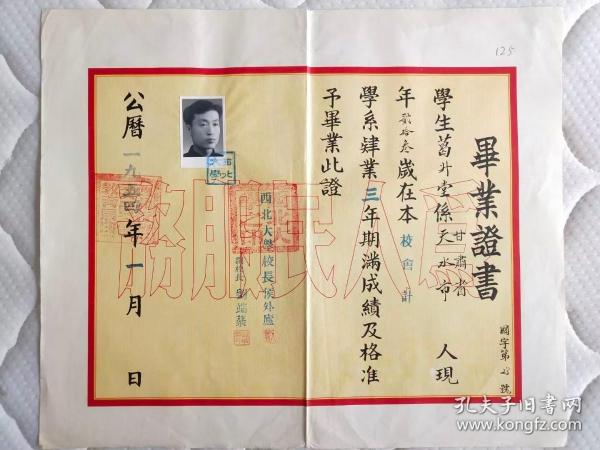 125
畢業證書
國字第 號
學生葛升堂係甘肅省天水市人現
年貳拾叁歲在本校會計
學系肄業三年期滿成績及格准
予畢業此證
西北大學校長侯外廬
副校長劉端棻
公曆一九五四年一月 日
為人民服務
孔夫子旧书网
www.kongfz.com